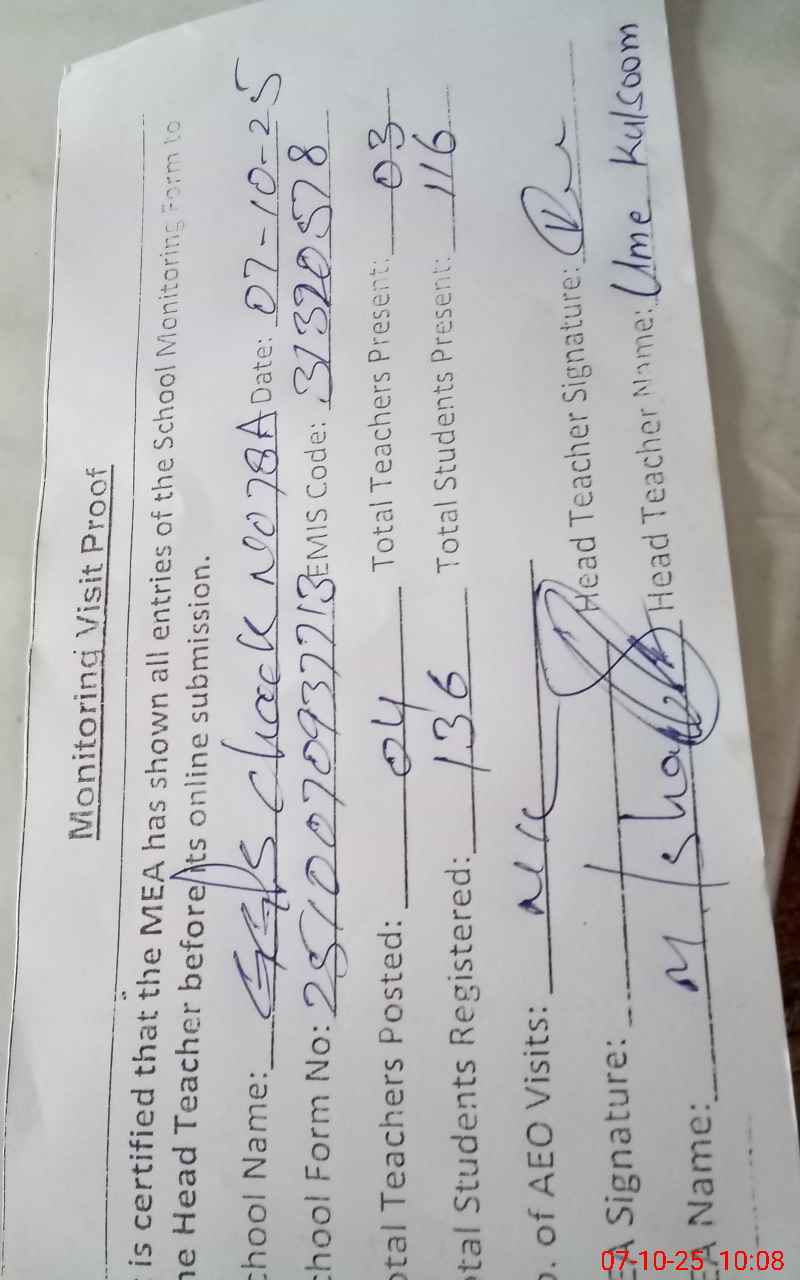 Monitoring Visit Proof
is certified that the MEA has shown all entries of the School Monitoring Form to
he Head Teacher before its online submission.
chool Name: GGPS Chack No 78A Date: 07-10-25
chool Form No: 2510070937713 EMIS Code: 31320578
otal Teachers Posted: 04 Total Teachers Present: 03
otal Students Registered: 136 Total Students Present: 116
o. of AEO Visits: Nill
EA Signature: Head Teacher Signature:
EA Name: M. Ishaq Head Teacher Name: Ume Kulsoom
07-10-25 10:08